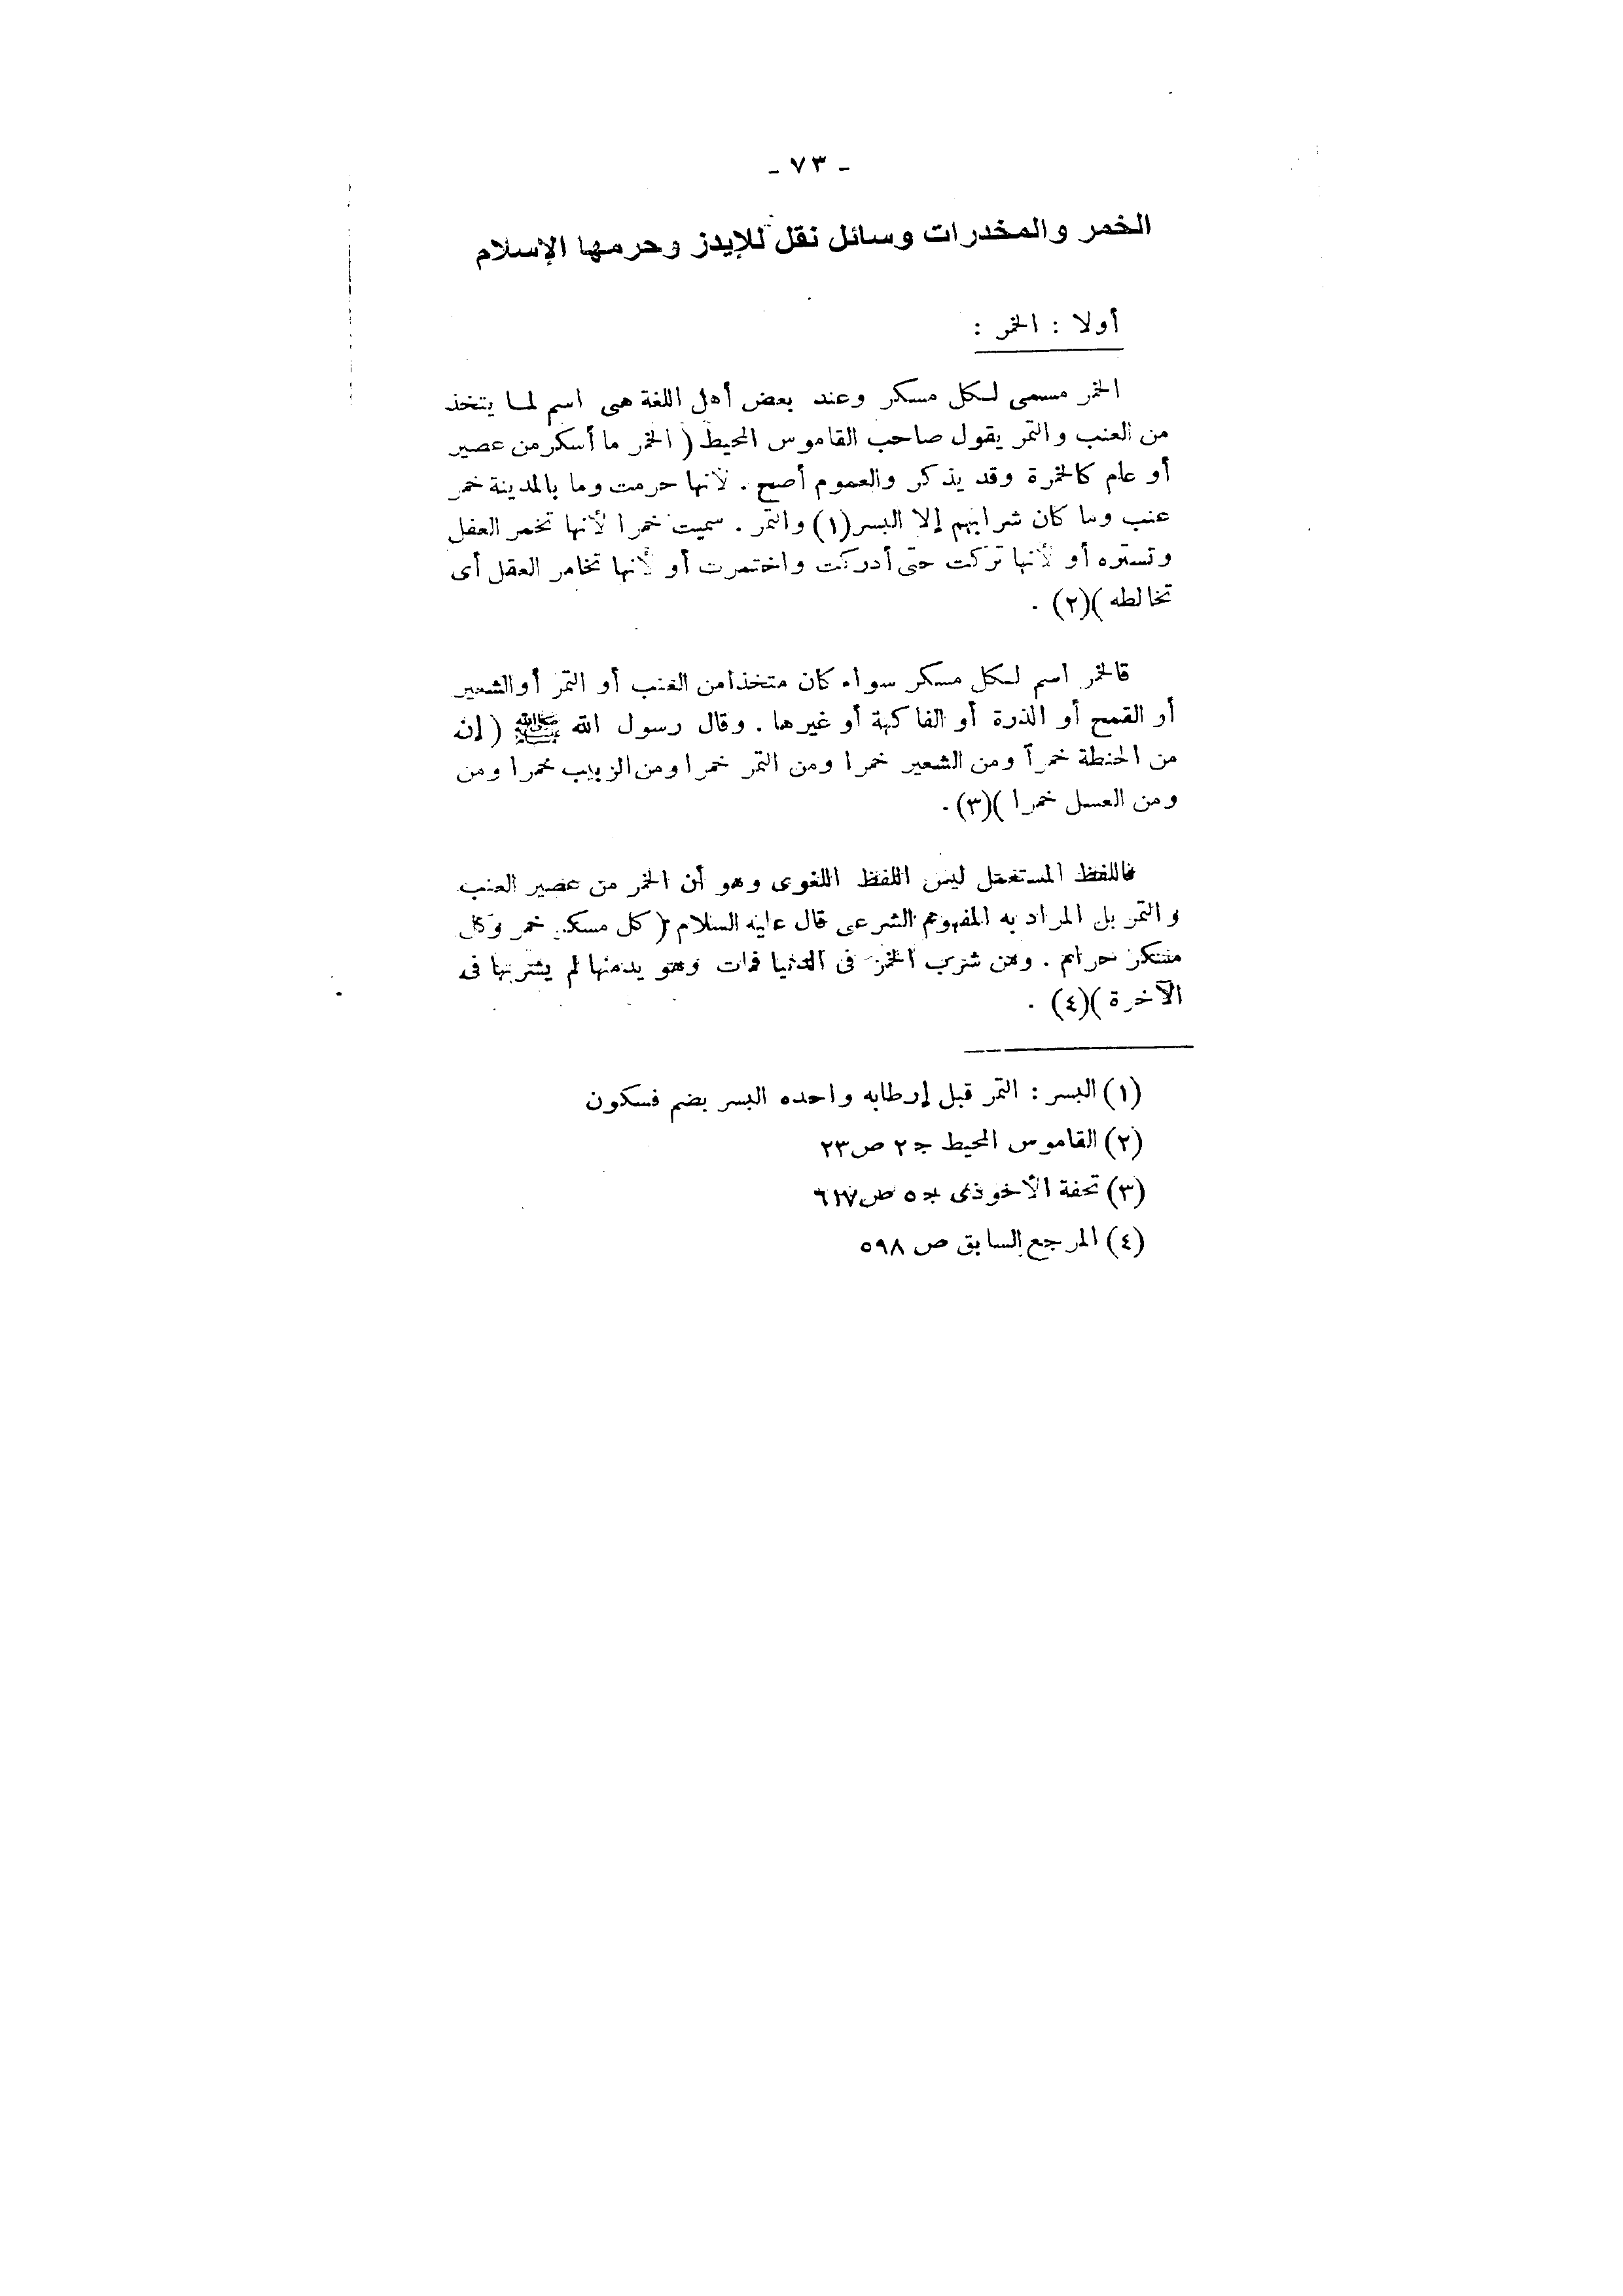 - ٧٣ -
الخمر والمخدرات وسائل نقل للإيدز وحرمها الإسلام
أولا : الخمر :
الخمر مسمى لكل مسكر وعند بعض أهل اللغة هى اسم لما يتخذ
من العنب والتمر يقول صاحب القاموس المحيط ( الخمر ما أسكر من عصير
أو عام كالخمرة وقد يذكر والعموم أصح . لأنها حرمت وما بالمدينة خمر
عنب وما كان شرابهم إلا البسر(١) والتمر . سميت خمرا لأنها تخمر العقل
وتستره أو لأنها تركت حتى أدركت واختمرت أو لأنها تخامر العقل أى
تخالطه )(٢) .
فالخمر اسم لكل مسكر سواء كان متخذا من العنب أو التمر أو الشعير
أو القمح أو الذرة أو الفاكهة أو غيرها . وقال رسول الله ﷺ ( إن
من الحنطة خمرآ ومن الشعير خمرا ومن التمر خمرا ومن الزبيب خمرا ومن
ومن العسل خمرا )(٣) .
فاللفظ المستعمل ليس اللفظ اللغوى وهو أن الخمر من عصير العنب
والتمر بل المراد به المفهوم الشرعى قال عليه السلام ( كل مسكر خمر وكل
مسكر حرام . ومن شرب الخمر فى الدنيا فمات وهو يدمنها لم يشربها فى
الآخرة )(٤) .
(١) البسر : التمر قبل إرطابه واحده البسر بضم فسكون
(٢) القاموس المحيط جـ ٢ ص ٢٣
(٣) تحفة الأخوذى جـ ٥ ص ٦١٧
(٤) المرجع السابق ص ٥٩٨